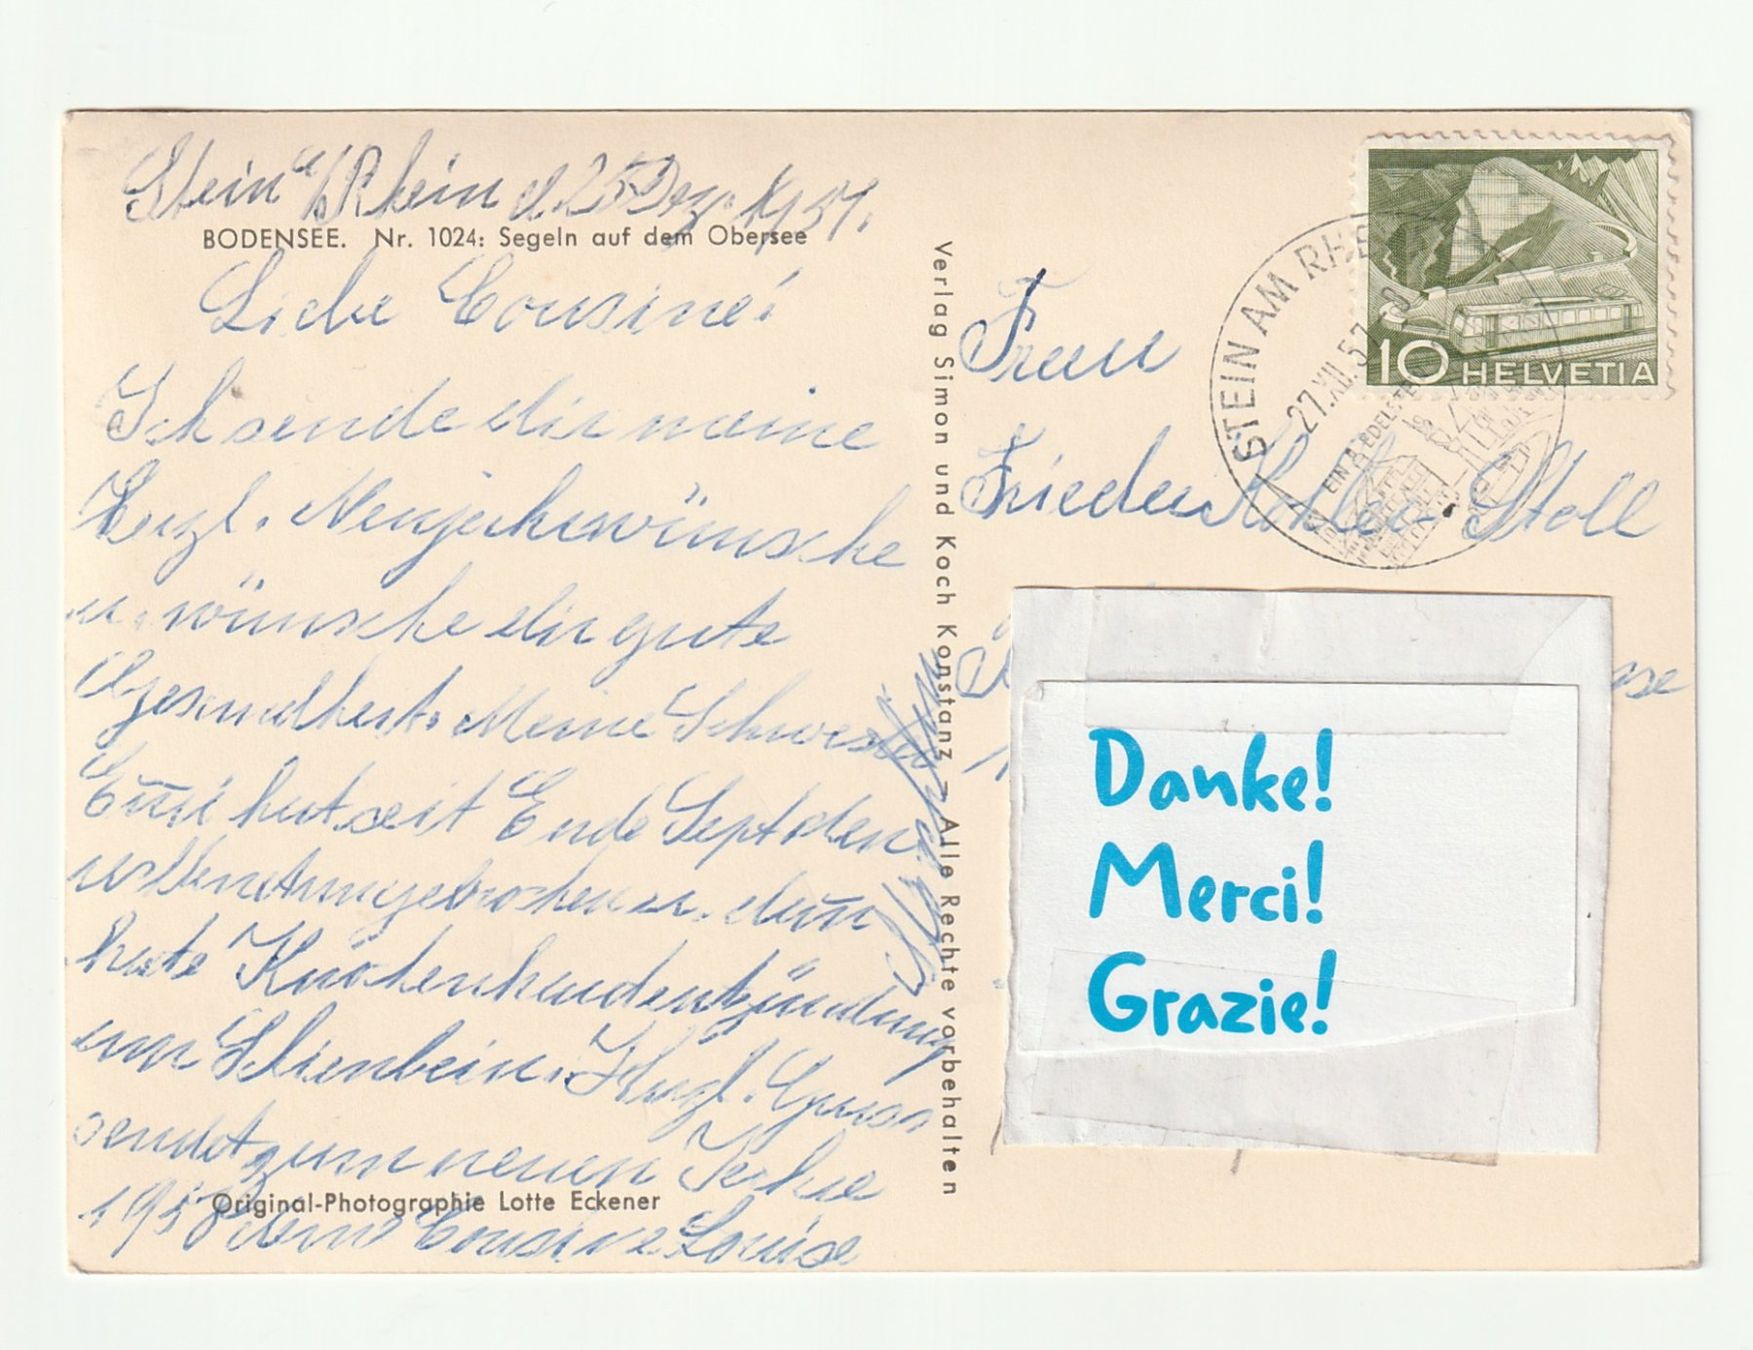 Stein a/Rhein d. 25 Dez. 1957.
BODENSEE. Nr. 1024: Segeln auf dem Obersee
Liebe Cousine!
Ich sende dir meine
Herzl. Neujahrswünsche
u. wünsche dir gute
Gesundheit. Meine Schwester
hat seit Ende Sept den
gebrochen u. dann
heute Knochenhautentzündung
am Schienbein. Herzl. Gruss
sendet zum neuen Jahre
1958 deine Cousine Louise
Original-Photographie Lotte Eckener
Verlag Simon und Koch Konstanz – Alle Rechte vorbehalten
Frau
Frieda Kohler-Stoll
STEIN AM RHEIN
27.XII.57
EIN EDELSTEIN
10 HELVETIA
Danke!
Merci!
Grazie!